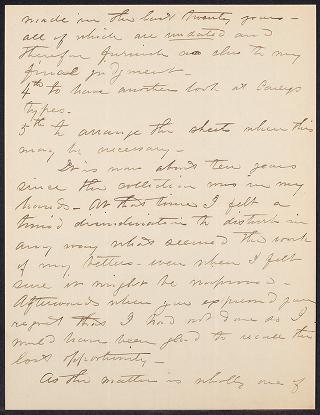 made in the last twenty years -
all of which are undated and
therefore furnish no clue to my
final judgment -
4th to have another look at Careys
types -
5th to arrange the sheets when this
may be necessary -
It is now about ten years
since the collection was in my
hands - At that time I felt a
timid disinclination to disturb in
any way what seemed the work
of my betters - even when I felt
sure it might be improved -
Afterwards when you expressed your
regret that I had not done so I
would have been glad to recall the
lost opportunity -
As the matter is wholly one of